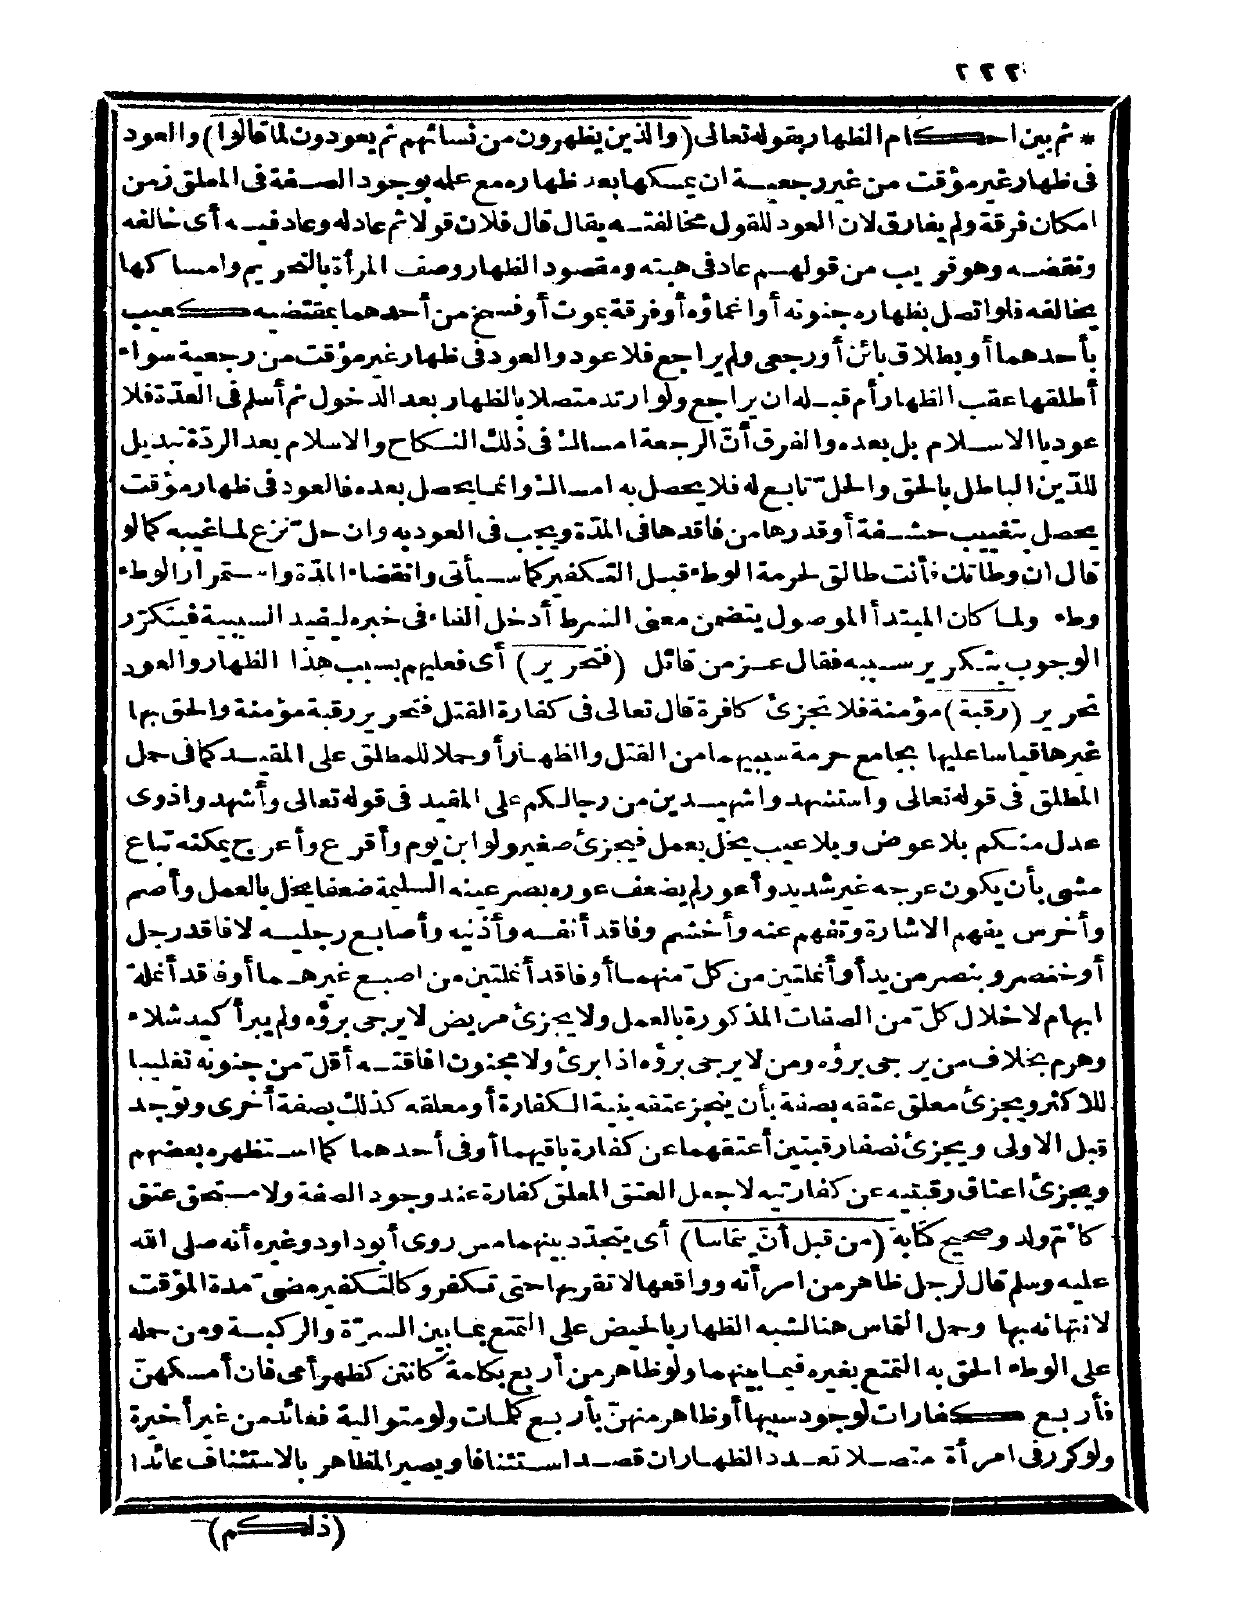 ٢٢٢
* ثم بين احكام الظهار بقوله تعالى (والذين يظهرون من نسائهم ثم يعودون لما قالوا) والعود
فى ظهار غير مؤقت من غير رجعية ان يمسكها بعد ظهاره مع علمه بوجود الصفة فى المعلق زمن
امكان فرقة ولم يفارق لان العود للقول مخالفته يقال قال فلان قولا ثم عاد له وعاد فيه أى خالفه
ونقضه وهو قريب من قولهم عاد فى هبته ومقصود الظهار وصف المرأة بالتحريم وامساكها
يخالفه فلو اتصل بظهاره جنونه أو اغماؤه أو فرقة بموت أو فسخ من أحدهما بمقتضيه كعيب
بأحدهما أو بطلاق بائن أو رجعى ولم يراجع فلا عود والعود فى ظهار غير مؤقت من رجعية سواء
أطلقها عقب الظهار أم قبله ان يراجع ولو ارتد متصلا بالظهار بعد الدخول ثم أسلم فى العدّة فلا
عود بالاسلام بل بعده والفرق أنّ الرجعة امساك فى ذلك النكاح والاسلام بعد الردّة تبديل
للدّين الباطل بالحق والحلّ تابع له فلا يحصل به امساك وانما يحصل بعده فالعود فى ظهار مؤقت
يحصل بتغييب حشفة أو قدرها من فاقدها فى المدّة ويجب فى العود به وان حلّ نزع لما غيبه كما لو
قال ان وطأتك فأنت طالق لحرمة الوطء قبل التكفير كما سيأتى وانقضاء المدّة واستمرار الوطء
وطء ولما كان المبتدأ الموصول يتضمن معنى الشرط أدخل الفاء فى خبره ليفيد السببية فيتكرّر
الوجوب بتكرير سببه فقال عز من قائل (فتحرير) أى فعليهم بسبب هذا الظهار والعود
تحرير (رقبة) مؤمنة فلا تجزئ كافرة قال تعالى فى كفارة القتل فتحرير رقبة مؤمنة والحق بها
غيرها قياسا عليها بجامع حرمة سببيهما من القتل والظهار أو حملا للمطلق على المقيد كما فى حمل
المطلق فى قوله تعالى واستشهدوا شهيدين من رجالكم على المقيد فى قوله تعالى وأشهدوا ذوى
عدل منكم بلا عوض وبلا عيب يخل بعمل فيجزئ صغير ولو ابن يوم وأقرع وأعرج يمكنه تباع
مشى بأن يكون عرجه غير شديد وأعور لم يضعف عوره بصر عينه السليمة ضعفا يخل بالعمل وأصم
وأخرس يفهم الاشارة وتفهم عنه وأخشم وفاقد أنفه وأذنيه وأصابع رجليه لا فاقد رجل
أو خنصر وبنصر من يد أو أنملتين من كلّ منهما أو فاقد أنملتين من اصبع غيرهما أو فاقد أنملة
ابهام لاخلال كلّ من الصفات المذكورة بالعمل ولا يجزئ مريض لا يرجى برؤه ولم يبرأ كيد شلاء
وهرم بخلاف من يرجى برؤه ومن لا يرجى برؤه اذا برئ ولا مجنون افاقته أقلّ من جنونه تغليبا
للاكثر ويجزئ معلق عتقه بصفة بأن ينجز عتقه بنية الكفارة أو معلقه كذلك بصفة أخرى وتوجد
قبل الاولى ويجزئ نصفا رقبتين أعتقهما عن كفارة باقيهما أو فى أحدهما كما استظهره بعضهم
ويجزئ اعتاق رقبتيه عن كفارتيه لا جعل العتق المعلق كفارة عند وجود الصفة ولا مستحق عتق
كأمّ ولد وصحيح كتابة (من قبل أن يتماسا) أى يتجدّد بينهما مس روى أبو داود وغيره أنه صلى الله
عليه وسلم قال لرجل ظاهر من امرأته وواقعها لا تقربها حتى تكفر وكالتكفير مضىّ مدة المؤقت
لانتهائه بها وحمل التماس هنا لشبه الظهار بالحيض على التمتع بما بين السرّة والركبة ومن حمله
على الوطء الحق به التمتع بغيره فيما بينهما ولو ظاهر من أربع بكلمة كأنتن كظهر أمى فان أمسكهنّ
فأربع كفارات لوجود سببها أو ظاهر منهنّ بأربع كلمات ولو متوالية فعائد من غير أخيرة
ولو كرر فى امرأة متصلا تعدد الظهار ان قصد استئنافا ويصير المظاهر بالاستئناف عائدا
(ذلكم)